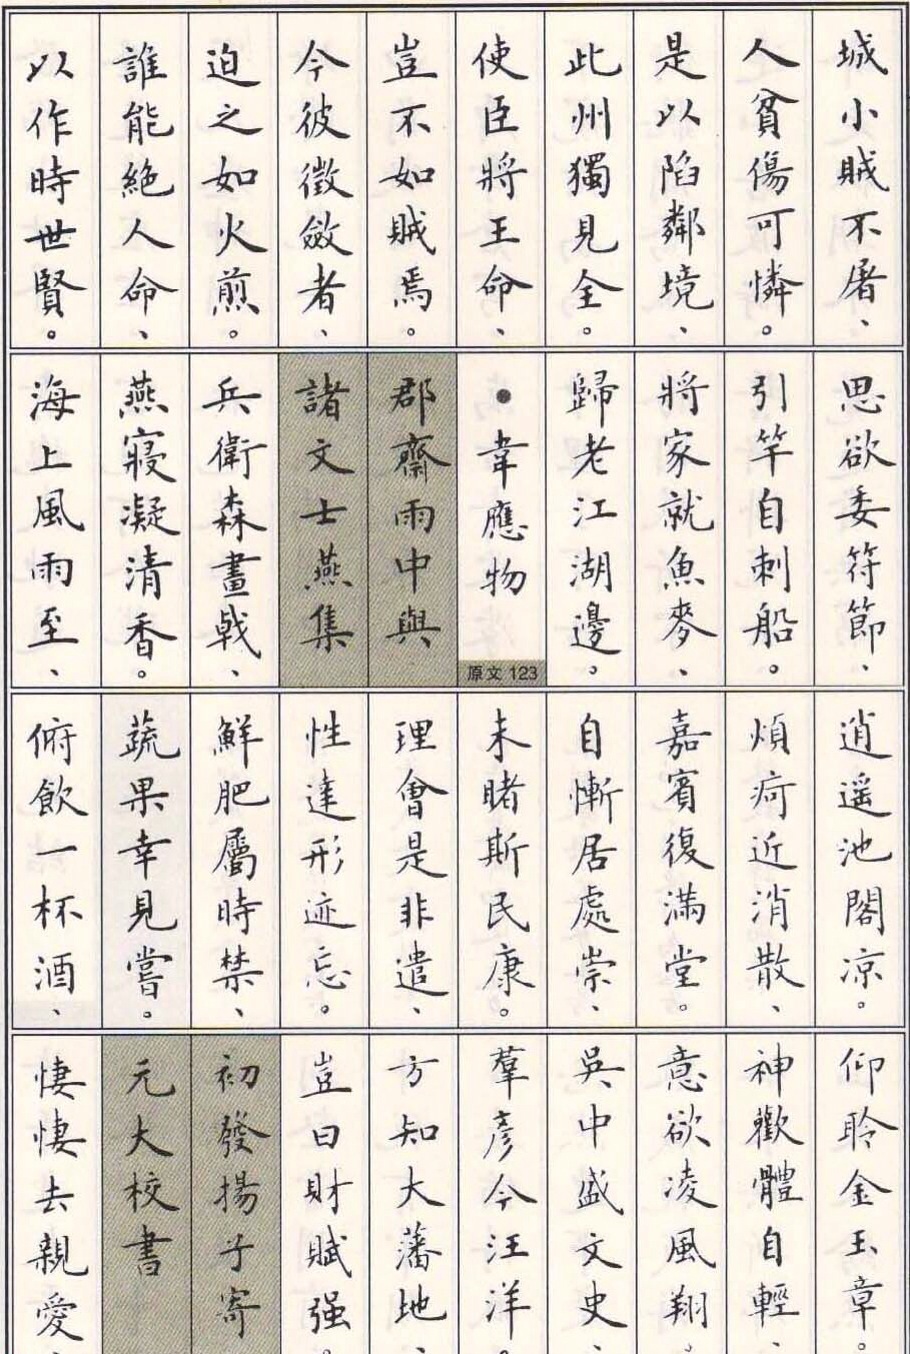 城小賊不屠、
人貧傷可憐。
是以陷鄰境、
此州獨見全。
使臣將王命、
豈不如賊焉。
今彼徵斂者、
迫之如火煎。
誰能絕人命、
以作時世賢。
思欲委符節、
引竿自刺船。
將家就魚麥、
歸老江湖邊。
●韋應物
原文 123
郡齋雨中與
諸文士燕集
兵衛森畫戟、
燕寢凝清香。
海上風雨至、
逍遥池閣凉。
煩疴近消散、
嘉賓復滿堂。
自慚居處崇、
未睹斯民康。
理會是非遣、
性達形迹忘。
鮮肥屬時禁、
蔬果幸見嘗。
俯飲一杯酒、
仰聆金玉章。
神歡體自輕、
意欲凌風翔。
吳中盛文史、
羣彥今汪洋。
方知大藩地、
豈曰財賦强。
初發揚子寄
元大校書
悽悽去親愛、